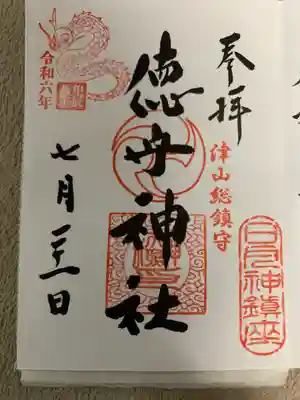 奉拝
津山総鎮守
神鎮座
徳守神社
令和六年
七月二十一日